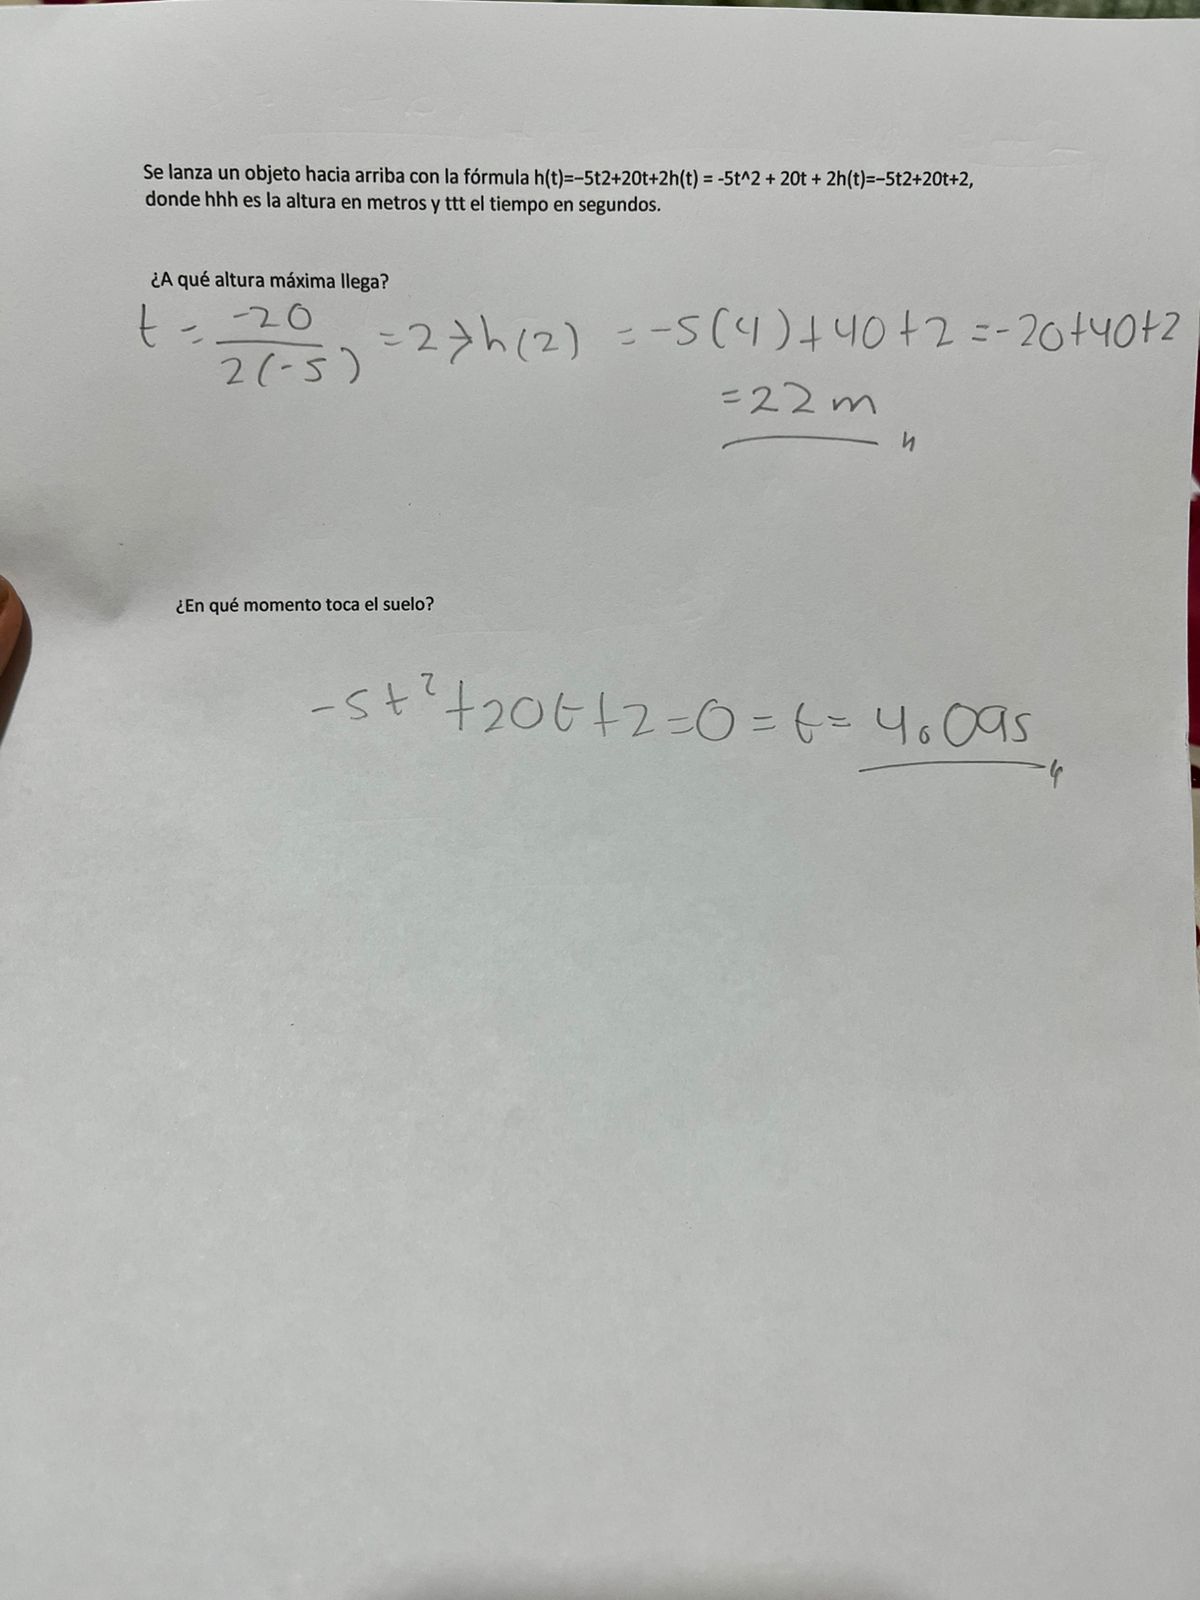 Se lanza un objeto hacia arriba con la fórmula h(t)=−5t2+20t+2h(t) = -5t^2 + 20t + 2h(t)=−5t2+20t+2,
donde hhh es la altura en metros y ttt el tiempo en segundos.
¿A qué altura máxima llega?
t = -20 / 2(-5) = 2 → h(2) = -5(4)+40+2 = -20+40+2
= 22 m
¿En qué momento toca el suelo?
-5t²+20t+2=0 = t = 4.09s